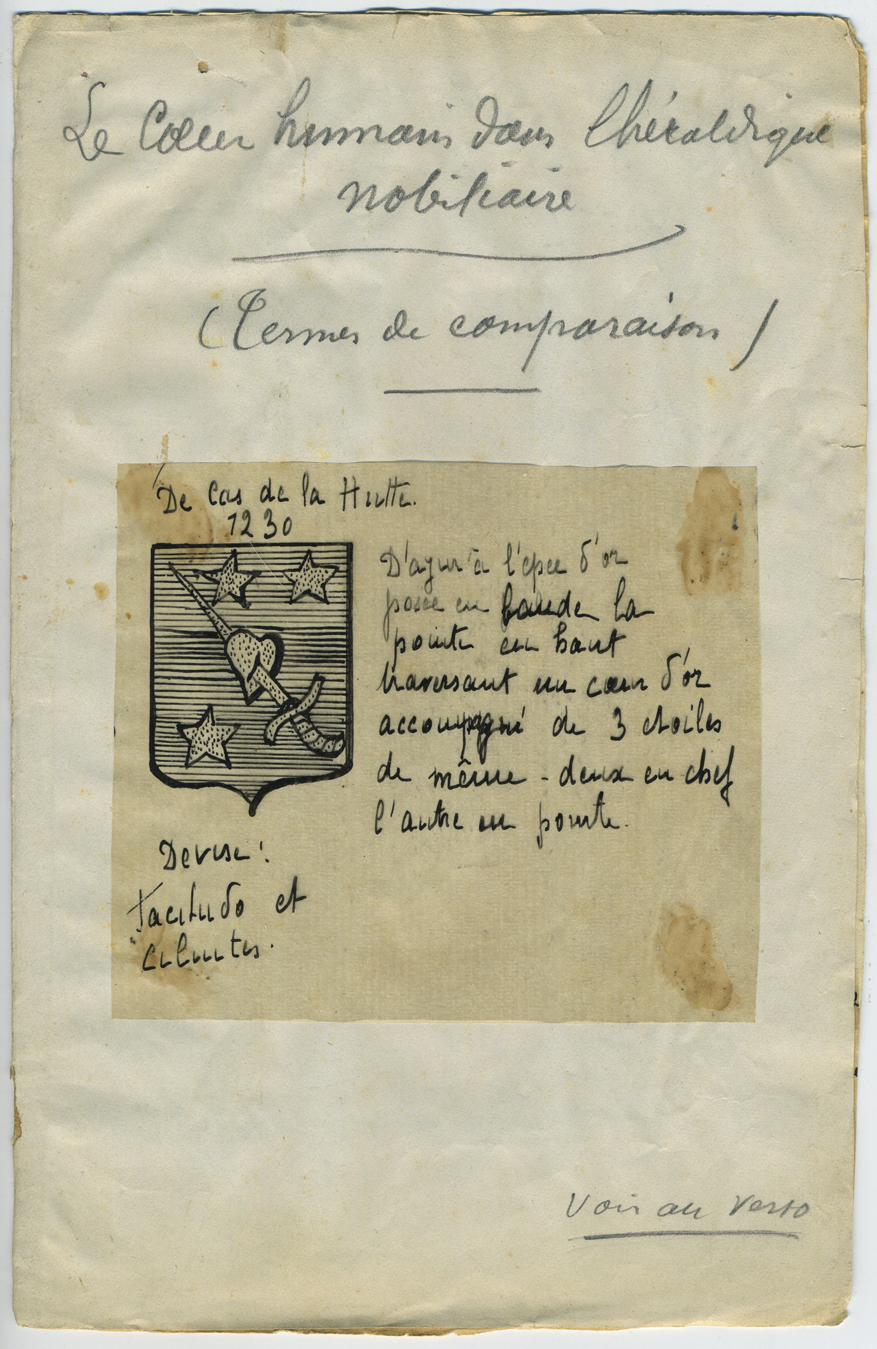 Le Cœur humain dans l'héraldique
nobiliaire
(Termes de comparaison)
De Cas de la Hutte.
1230
D'azur à l'épée d'or
posée en bande la
pointe en haut
traversant un cœur d'or
accompagné de 3 étoiles
de même - deux en chef
l'autre en pointe.
Devise:
et
Voir au verso